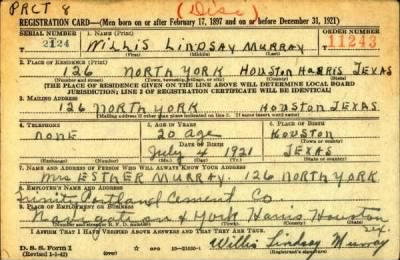 PRCT 8
(Disc)
REGISTRATION CARD—(Men born on or after February 17, 1897 and on or before December 31, 1921)
SERIAL NUMBER 1. NAME (Print) ORDER NUMBER
2124 WILLIS LINDSAY MURRAY 11243
(First) (Middle) (Last)
2. PLACE OF RESIDENCE (Print)
126 NORTH YORK HOUSTON HARRIS TEXAS
(Number and street) (Town, township, village, or city) (County) (State)
(THE PLACE OF RESIDENCE GIVEN ON THE LINE ABOVE WILL DETERMINE LOCAL BOARD
JURISDICTION; LINE 2 OF REGISTRATION CERTIFICATE WILL BE IDENTICAL)
3. MAILING ADDRESS
126 NORTH YORK HOUSTON TEXAS
(Mailing address if other than place indicated on line 2. If same insert word same)
4. TELEPHONE 5. AGE IN YEARS 6. PLACE OF BIRTH
NONE 20 age HOUSTON
DATE OF BIRTH (Town or county)
July 4 1921 TEXAS
(Exchange) (Number) (Mo.) (Day) (Yr.) (State or country)
7. NAME AND ADDRESS OF PERSON WHO WILL ALWAYS KNOW YOUR ADDRESS
Mrs ESTHER MURRAY. 126 NORTH YORK
8. EMPLOYER'S NAME AND ADDRESS
Portland Cement Co.
9. PLACE OF EMPLOYMENT OR BUSINESS
Navigation & York Harris Houston
Tex.
(Number and street or R. F. D. number) (Town) (County) (State)
I AFFIRM THAT I HAVE VERIFIED ABOVE ANSWERS AND THAT THEY ARE TRUE.
D. S. S. Form 1
(Revised 1-1-42) GPO
Willis Lindsay Murray